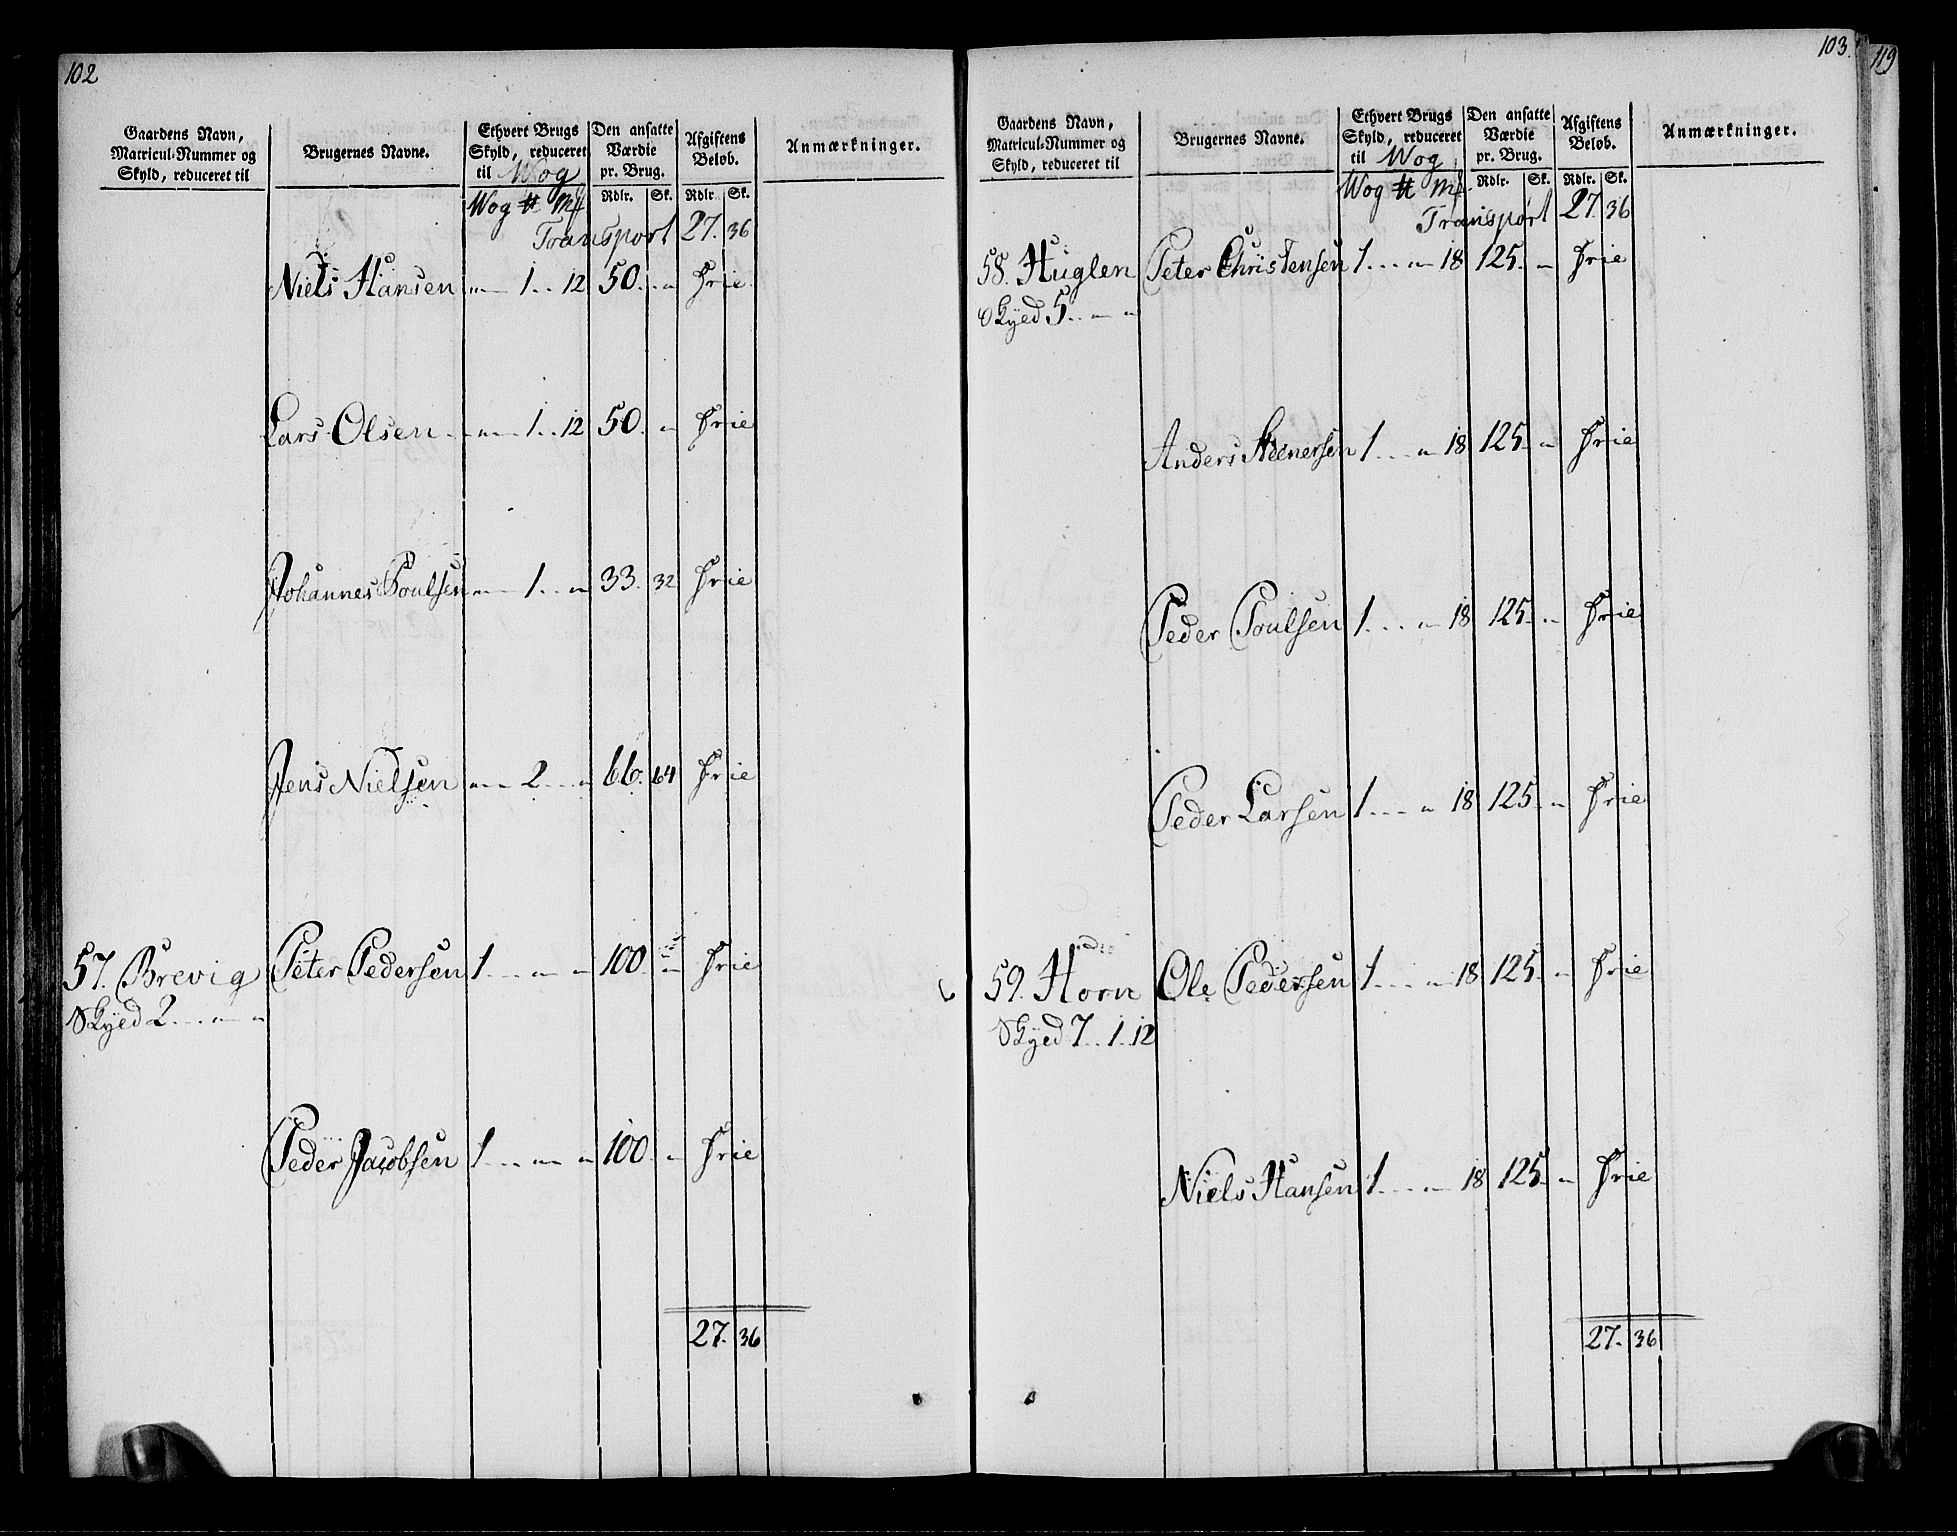 102
Gaardens Navn, Matricul-Nummer og Skyld, reduceret til
Brugernes Navne.
Ethvert Brugs Skyld, reduceret til Wog
Den ansatte Værdie pr. Brug.
Afgiftens Beløb.
Anmærkninger.
Wog ₶ Mk Rdlr. Sk. Rdlr. Sk.
Transport 27. 36
Niels Hansen „ 1 .. 12 50. .. „ Frie
Lars Olsen .. „ 1 .. 12 50. „ Frie
Johannes Poulsen „ 1 .. „ 33. 32 Frie
Jens Nielsen „ 2 .. „ 66. 64 Frie
57. Brevig Peter Pedersen 1 ... „ „ 100. „ Frie
Skyed 2 ... „ „
Peder Jacobsen 1 ... „ „ 100. „ Frie
27. 36
103.
119
Gaardens Navn, Matricul-Nummer og Skyld, reduceret til
Brugernes Navne.
Ethvert Brugs Skyld, reduceret til Wog
Den ansatte Værdie pr. Brug.
Afgiftens Beløb.
Anmærkninger.
Wog ₶ Mk. Rdlr. Sk. Rdlr. Sk.
Transport 27. 36
58. Huglen Peter Christensen 1 ... „ 18 125. „ Frie
Skyed 5 .. „ „
Anders Steenersen 1 ... „ 18 125. „ Frie
Peder Poulsen 1 ... „ 18 125. „ Frie
Peder Larsen 1 ... „ 18 125. „ Frie
59. Horn Ole Pedersen 1 ... „ 18 125. „ Frie
Skyed 7 .. 1 .. 12
Niels Hansen 1 ... „ 18 125. „ Frie
27. 36